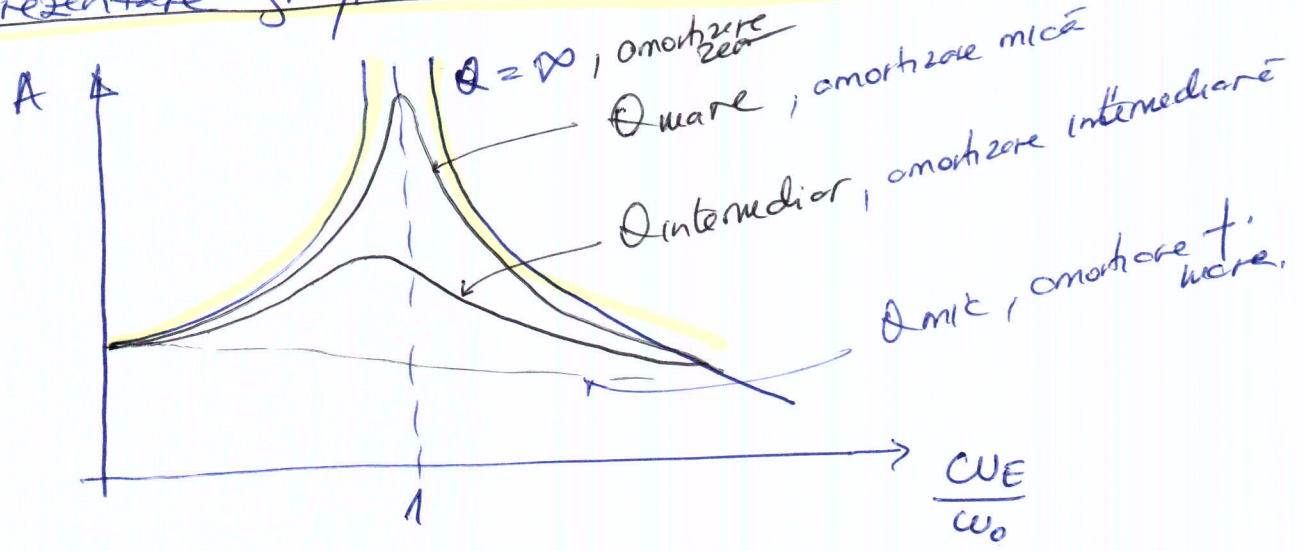 A
Q = ∞, amortizare
zero
Q mare, amortizare mică
Q intermediar, amortizare intermediară
Q mic, amortizare f.
mare.
1
ωE
ω0